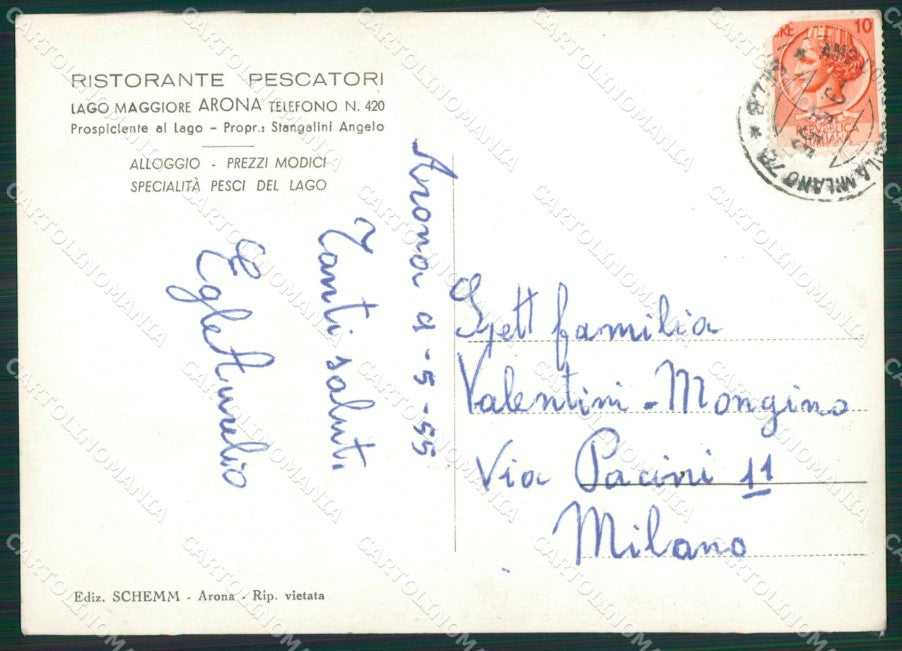 RISTORANTE PESCATORI
LAGO MAGGIORE ARONA TELEFONO N. 420
Prospiciente al Lago - Propr.: Stangalini Angelo
ALLOGGIO - PREZZI MODICI
SPECIALITÀ PESCI DEL LAGO
Arona 9-5-55
Tanti saluti
Egle Aurelio
10
Gett famiglia
Valentini - Mongino
Via Pacini 11
Milano
Ediz. SCHEMM - Arona - Rip. vietata
CARTOLINOMANIA